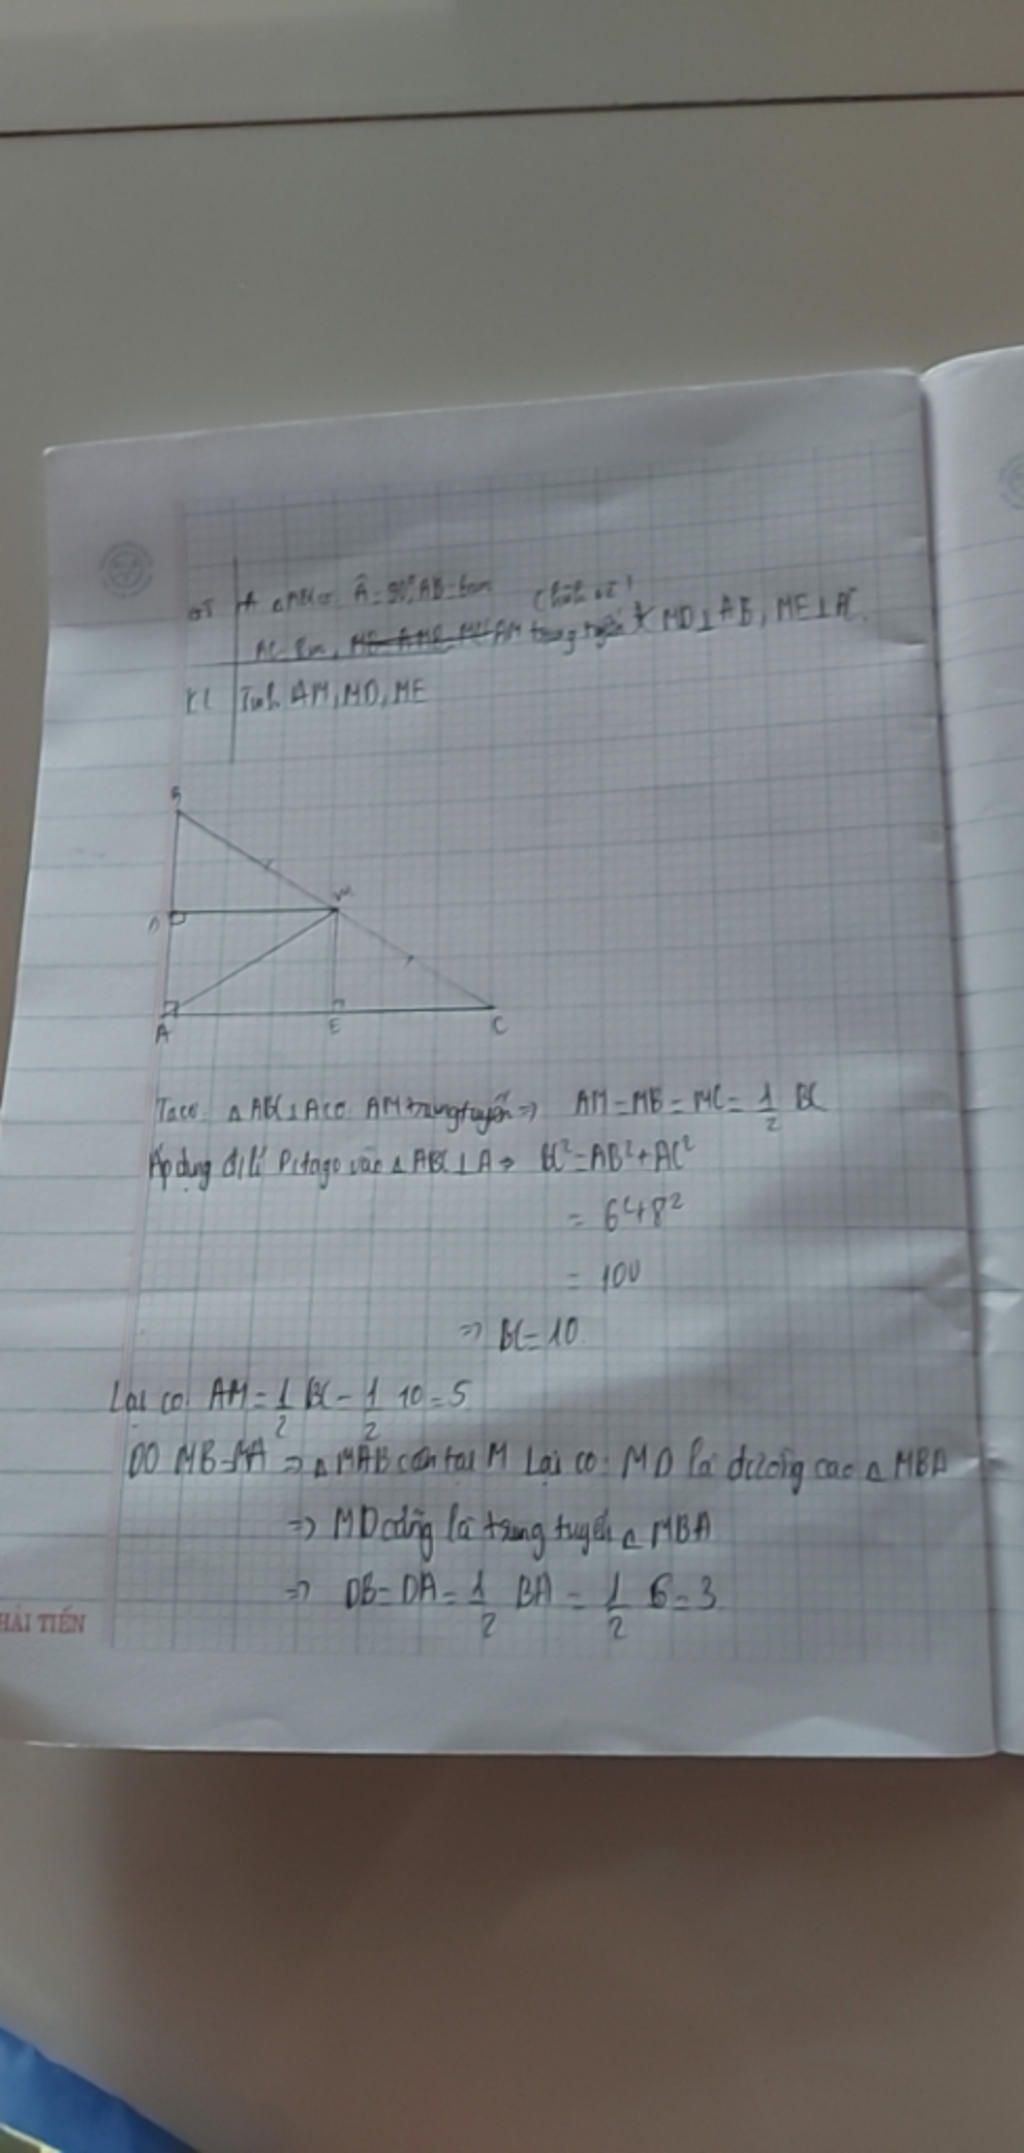 GT Δ ABC có Â = 90°, AB = 6cm (hình vẽ)
AC = 8cm, AM trung tuyến MD⊥AB, ME⊥AC.
KL Tính AM, MD, ME
B
M
D
A E C
Ta có: Δ ABC⊥A có AM trung tuyến ⇒ AM = MB = MC = 1/2 BC
Áp dụng đ/lí Pitago vào Δ ABC⊥A ⇒ BC² = AB² + AC²
= 6²+8²
= 100
⇒ BC = 10.
Lại có: AM = 1/2 BC = 1/2 10 = 5
DO MB=MA ⇒ Δ MAB cân tại M Lại có: MD là đường cao Δ MBA
⇒ MD cũng là trung tuyến Δ MBA
⇒ DB = DA = 1/2 BA = 1/2 6 = 3
HẢI TIẾN